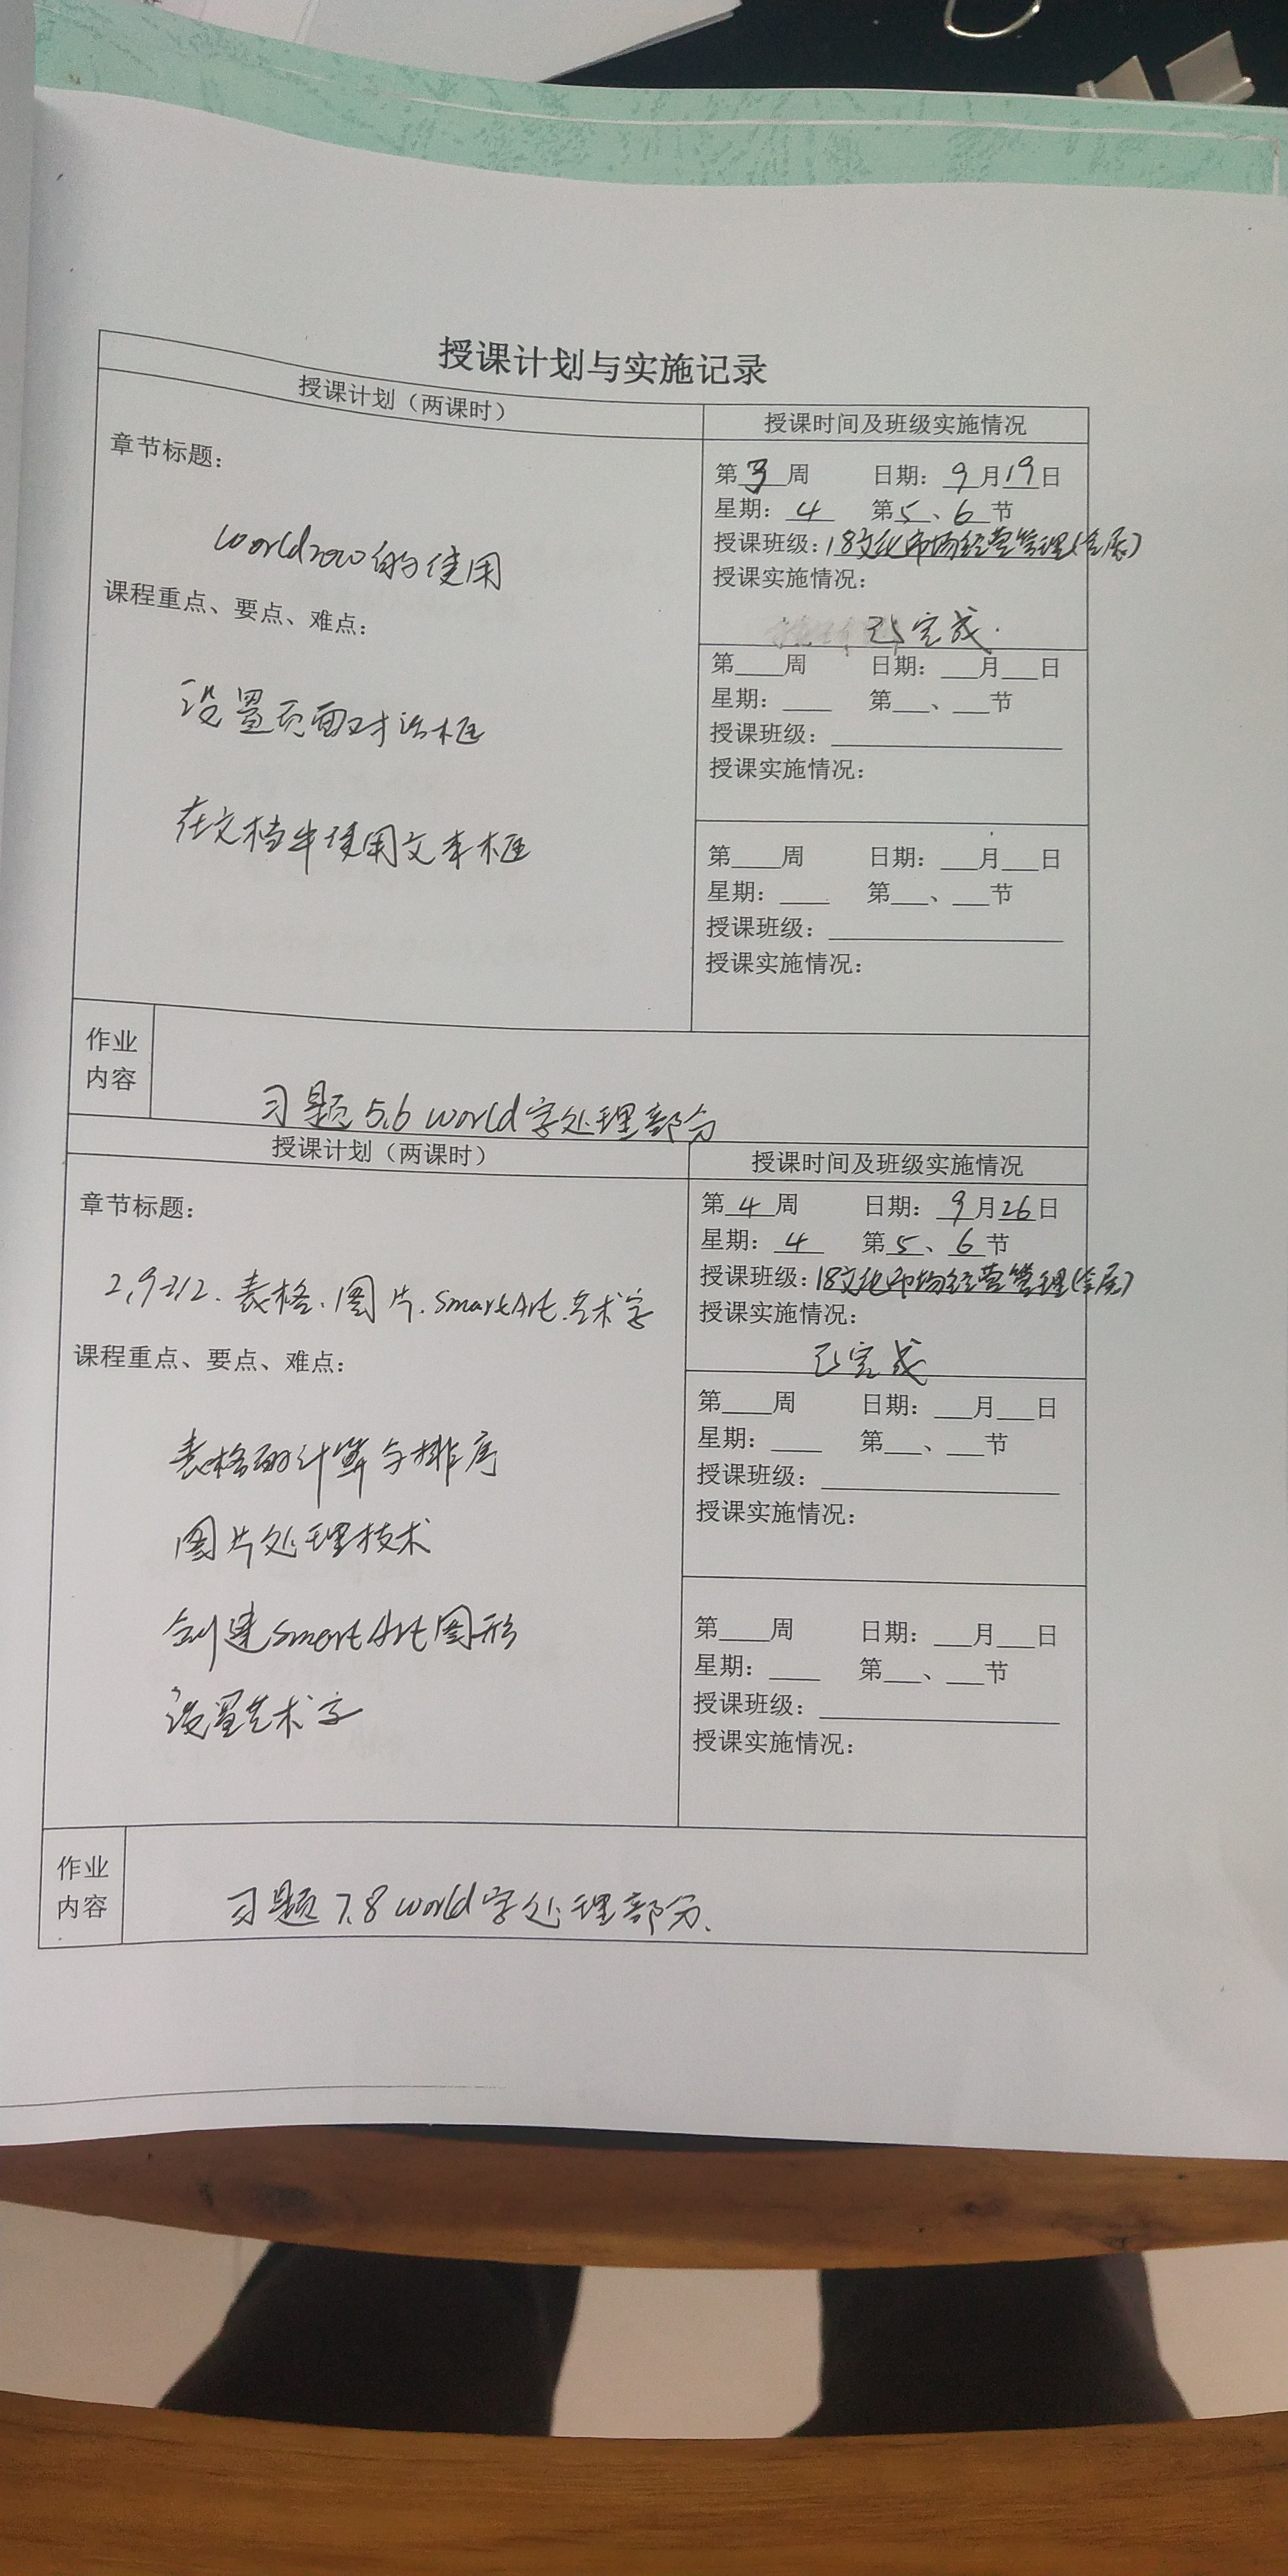 授课计划与实施记录
授课计划（两课时）
授课时间及班级实施情况
章节标题：
world2010的使用
课程重点、要点、难点：
设置页面对话框
在文档中使用文本框
第3周 日期：9月19日
星期：4 第5、6节
授课班级：18文化市场经营管理(会展)
授课实施情况：
已完成.
第____周 日期：___月___日
星期：____ 第___、___节
授课班级：
授课实施情况：
第____周 日期：___月___日
星期：____ 第___、___节
授课班级：
授课实施情况：
作业
内容
习题5.6 world字处理部分
授课计划（两课时）
授课时间及班级实施情况
章节标题：
表格、图片.SmartArt.艺术字
课程重点、要点、难点：
表格的计算与排序
图片处理技术
创建SmartArt图形
设置艺术字
第4周 日期：9月26日
星期：4 第5、6节
授课班级：18文化市场经营管理(会展)
授课实施情况：
已完成
第____周 日期：___月___日
星期：____ 第___、___节
授课班级：
授课实施情况：
第____周 日期：___月___日
星期：____ 第___、___节
授课班级：
授课实施情况：
作业
内容
习题7.8 world字处理部分.